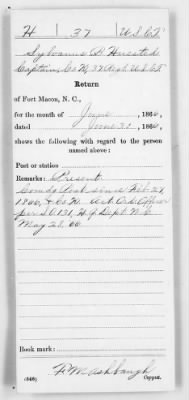 H | 37 | U.S.C.T.
Sylvanus H. Husted
Captain, Co. H, 37 Regt. U.S.C.T.
Return
of Fort Macon, N. C.,
for the month of June, 1866,
dated June 30, 1866,
shows the following with regard to the person
named above:
Post or station
Remarks: Present
Comdg Post since Feb 27,
1866, & Co H. Act. Ord. Officer
per S.O. 131, Hd. Qr. Dept. N.C.
May 28, 66
Book mark:
(546)
Copyist.